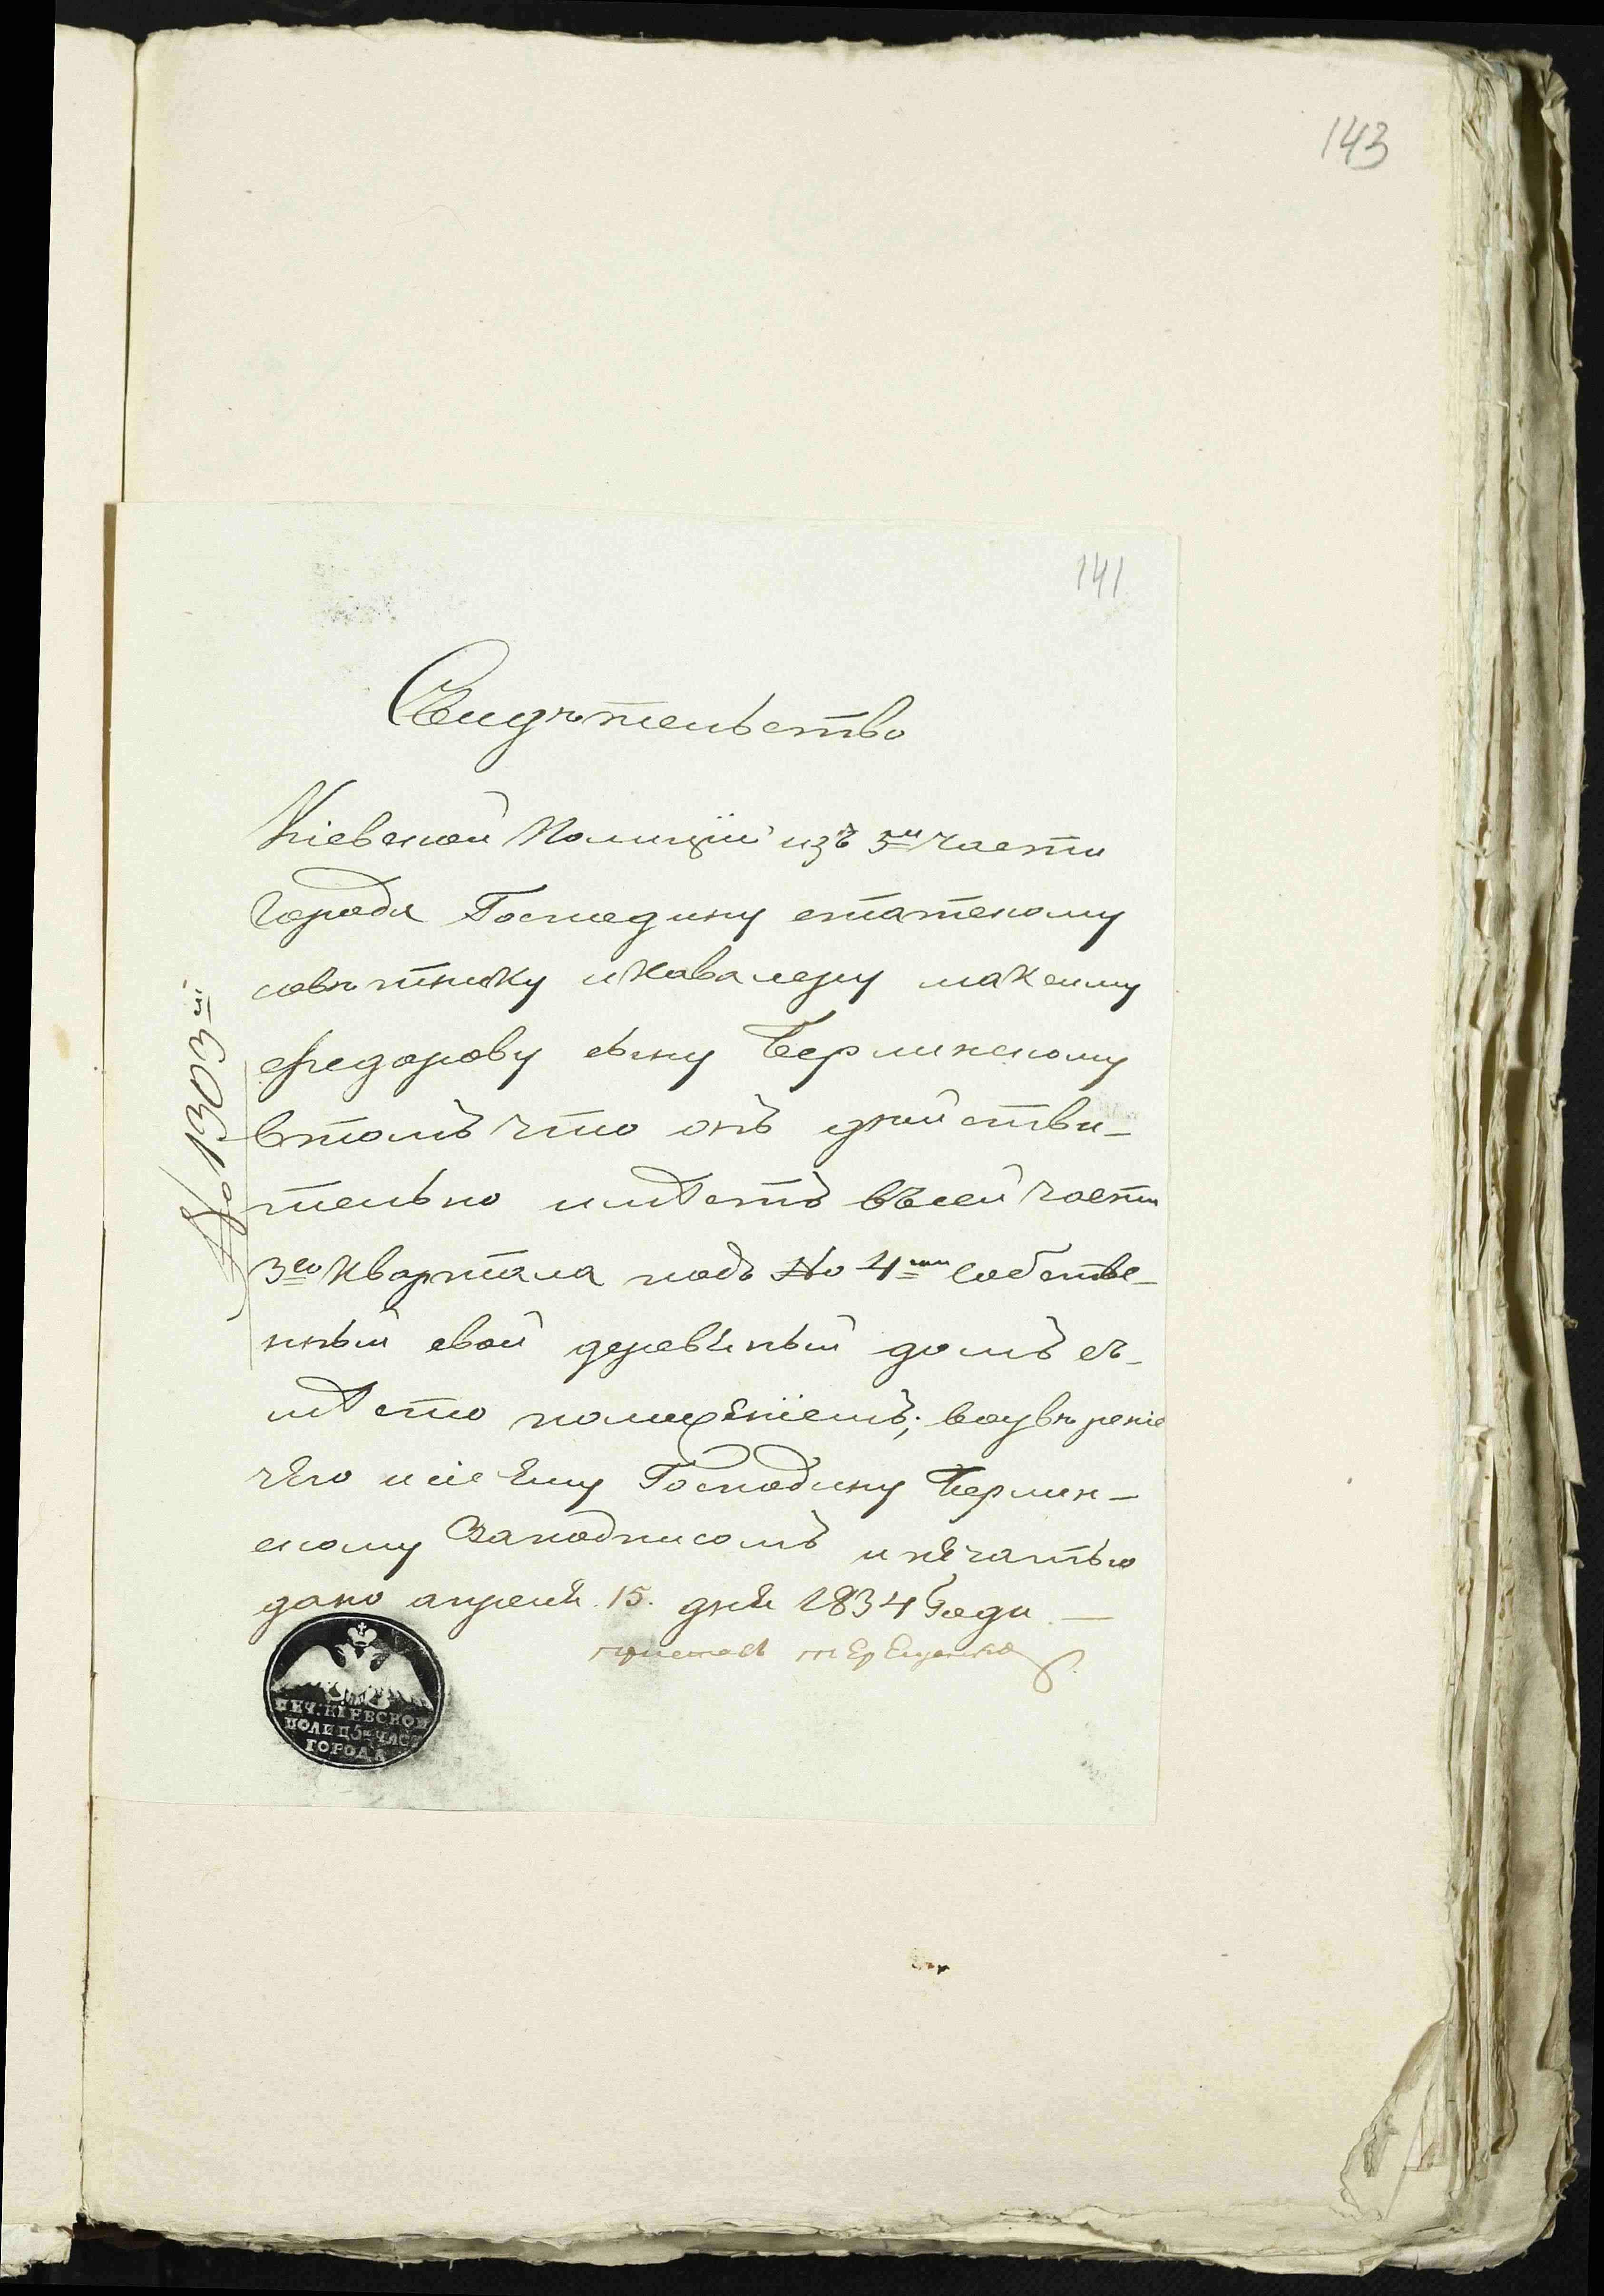 143
141
Свидѣтельство
Кіевской Полиціи изъ 5й части
города Господину статскому
совѣтнику и кавалеру максиму
федорову сыну Берлинскому
втомъ что онъ дѣйстви-
тельно имѣетъ въсей части
3го квартала подъ No 4мъ собстве-
нный свой деревяный домъ съ-
мѣсто положеніемъ; воувѣреніе
чего и сіе ему Господину Берлин-
скому заподписомъ и печатью
дано апреля. 15. дня 1834 Года —
приставъ
No 1303й
ПЕЧ. КІЕВСКОЙ
ПОЛИЦ 5й ЧАСТ
ГОРОДА